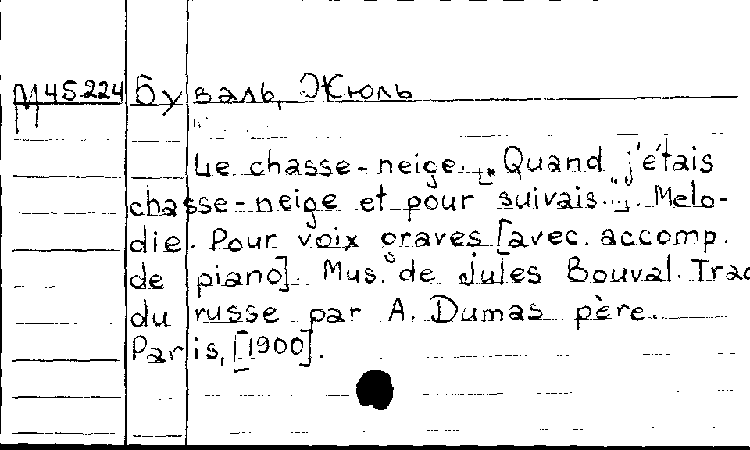 М 45224 Буваль, Жюль
Le chasse-neige. „Quand j'étais
chasse-neige et pour suivais...". Melo-
die. Pour voix graves [avec. accomp.
de piano]. Mus. de Jules Bouval. Trad
du russe par A. Dumas père.
Paris, [1900].